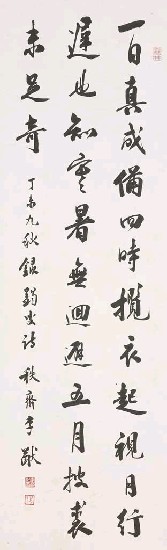 一日真成備四時攬衣起視日行
遲也知寒暑無迴避五月披裘
未足奇
丁未九秋錄鷄叟詩 秩齋李猷